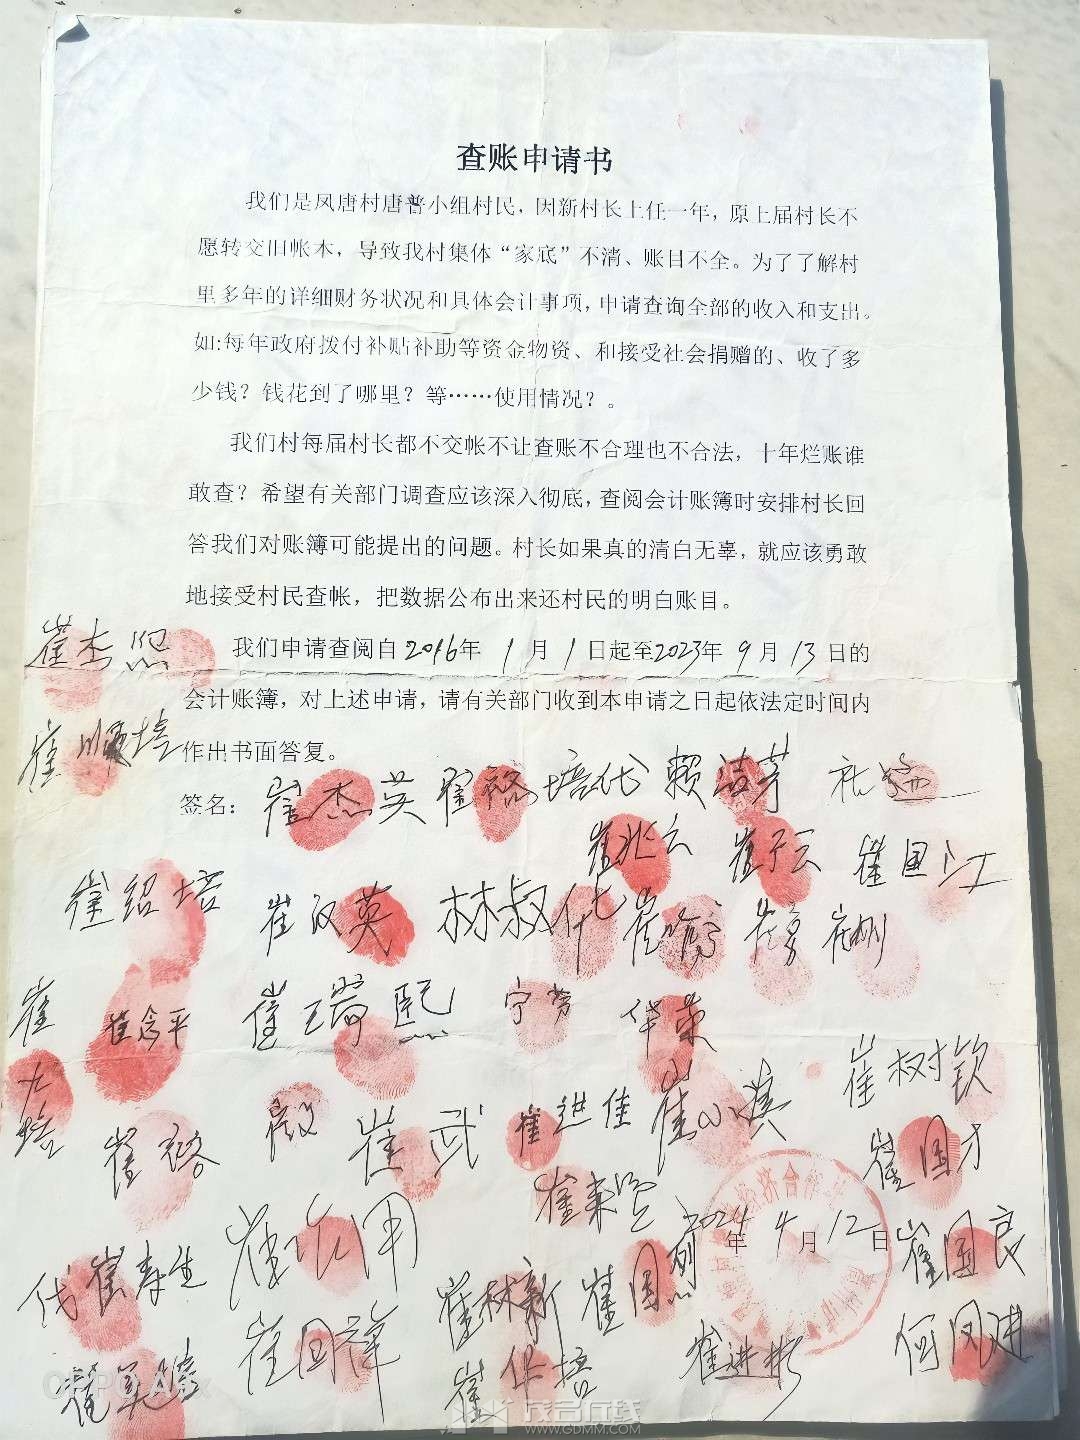 查账申请书
我们是凤唐村唐普小组村民，因新村长上任一年，原上届村长不
愿转交旧帐本，导致我村集体“家底”不清、账目不全。为了了解村
里多年的详细财务状况和具体会计事项，申请查询全部的收入和支出。
如:每年政府拨付补贴补助等资金物资、和接受社会捐赠的、收了多
少钱？钱花到了哪里？等……使用情况？。
我们村每届村长都不交帐不让查账不合理也不合法，十年烂账谁
敢查？希望有关部门调查应该深入彻底，查阅会计账簿时安排村长回
答我们对账簿可能提出的问题。村长如果真的清白无辜，就应该勇敢
地接受村民查帐，把数据公布出来还村民的明白账目。
崔杰熙
我们申请查阅自2016年1月1日起至2023年9月13日的
会计账簿，对上述申请，请有关部门收到本申请之日起依法定时间内
崔顺培
作出书面答复。
签名：崔杰英 培代 赖洁芳
崔兆云 崔子云 崔国江
崔绍培 崔汉英 林叔代
崔念平 崔瑞熙 宁芳 华荣
崔树钦
崔武 崔进佳 崔小淇
崔国才
崔来
2024年4月12日
崔国良
代崔寿生
崔树新 崔国烈
崔国祥 崔进彬 何凤进
崔华培
OPPO A
茂名在线
WWW.GDMM.COM